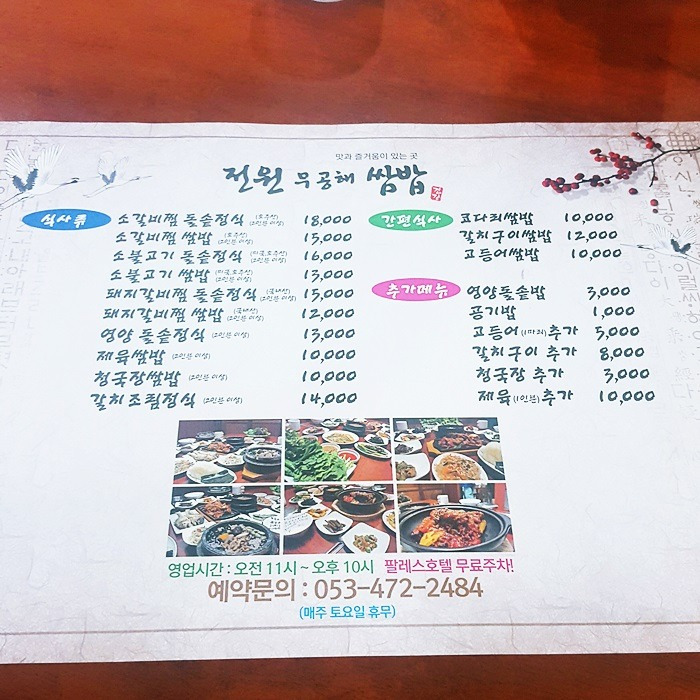 맛과 즐거움이 있는 곳
전원 무공해 쌈밥
식사류
소갈비찜 돌솥정식 (호주산) (2인분 이상) 18,000
소갈비찜 쌈밥 (호주산) (2인분 이상) 15,000
소불고기 돌솥정식 (미국,호주산) (2인분 이상) 16,000
소불고기 쌈밥 (미국,호주산) (2인분 이상) 13,000
돼지갈비찜 돌솥정식 (국내산) (2인분 이상) 15,000
돼지갈비찜 쌈밥 (국내산) (2인분 이상) 12,000
영양 돌솥정식 (2인분 이상) 13,000
제육쌈밥 (2인분 이상) 10,000
청국장쌈밥 (2인분 이상) 10,000
갈치조림정식 (2인분 이상) 14,000
간편식사
코다리쌈밥 10,000
갈치구이쌈밥 12,000
고등어쌈밥 10,000
추가메뉴
영양돌솥밥 3,000
공기밥 1,000
고등어(1마리)추가 5,000
갈치구이 추가 8,000
청국장 추가 3,000
제육(1인분)추가 10,000
영업시간 : 오전 11시 ~ 오후 10시 팔레스호텔 무료주차!
예약문의 : 053-472-2484
(매주 토요일 휴무)